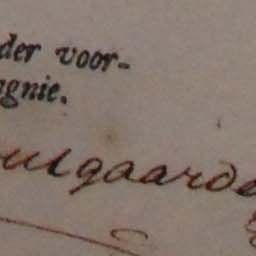 der voor-
gnie.
ulgaarde